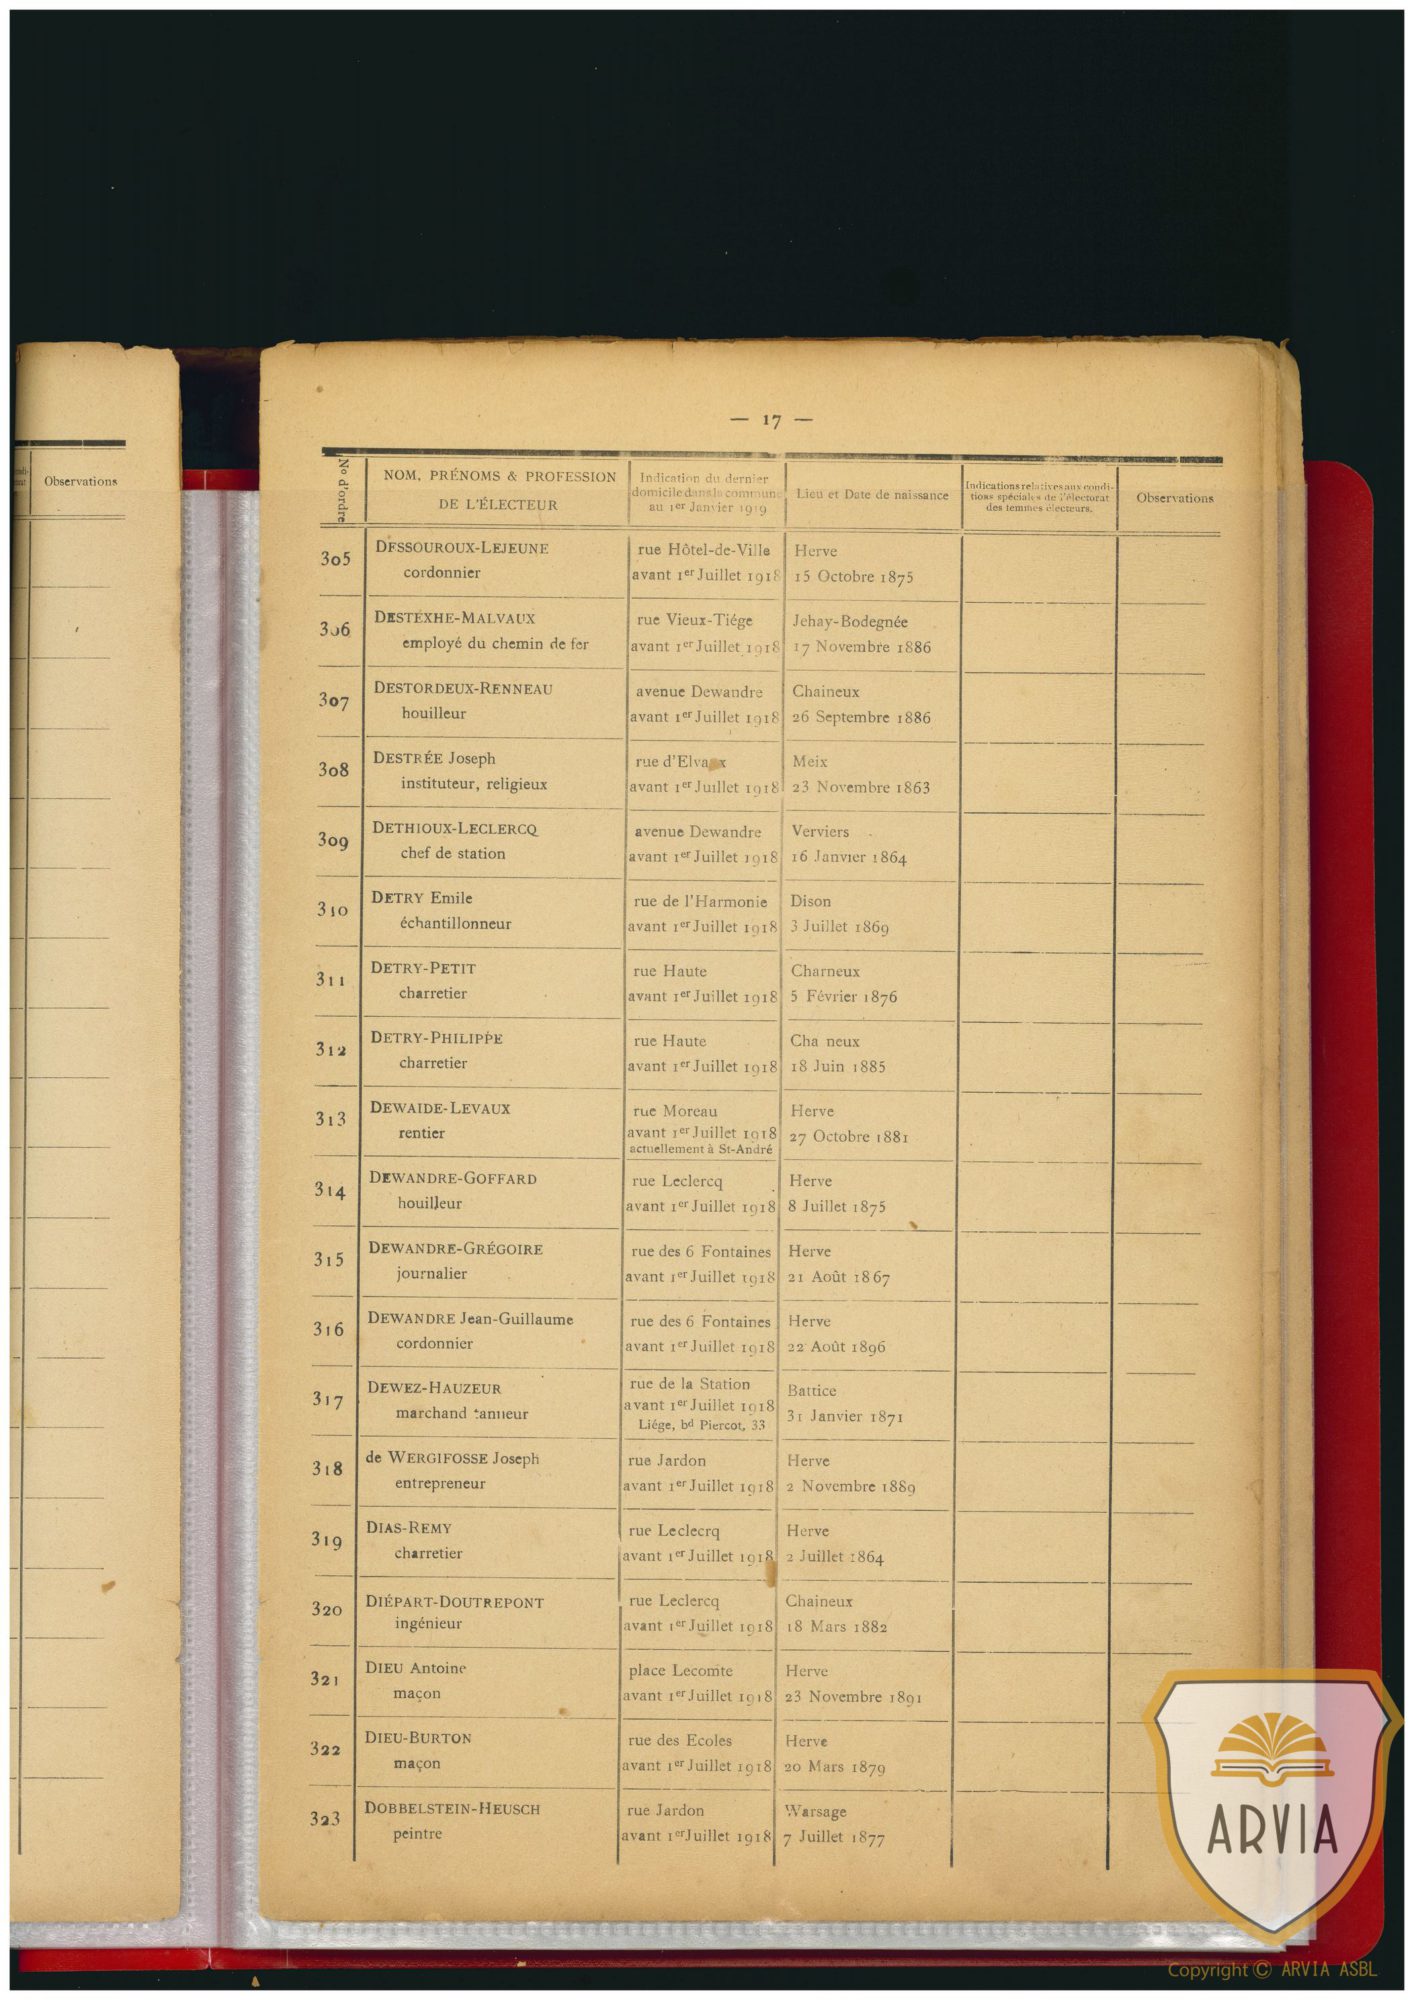 Observations
— 17 —
No d'ordre
NOM, PRÉNOMS & PROFESSION
DE L'ÉLECTEUR
Indication du dernier
domicile dans la commune
au 1er Janvier 1919
Lieu et Date de naissance
Indications relatives aux condi-
tions spéciales de l'électorat
des femmes électeurs.
Observations
305 DESSOUROUX-LEJEUNE rue Hôtel-de-Ville Herve
cordonnier avant 1er Juillet 1918 15 Octobre 1875
306 DESTEXHE-MALVAUX rue Vieux-Tiége Jehay-Bodegnée
employé du chemin de fer avant 1er Juillet 1918 17 Novembre 1886
307 DESTORDEUX-RENNEAU avenue Dewandre Chaineux
houilleur avant 1er Juillet 1918 26 Septembre 1886
308 DESTRÉE Joseph rue d'Elvaux Meix
instituteur, religieux avant 1er Juillet 1918 23 Novembre 1863
309 DETHIOUX-LECLERCQ avenue Dewandre Verviers
chef de station avant 1er Juillet 1918 16 Janvier 1864
310 DETRY Emile rue de l'Harmonie Dison
échantillonneur avant 1er Juillet 1918 3 Juillet 1869
311 DETRY-PETIT rue Haute Charneux
charretier avant 1er Juillet 1918 5 Février 1876
312 DETRY-PHILIPPE rue Haute Cha neux
charretier avant 1er Juillet 1918 18 Juin 1885
313 DEWAIDE-LEVAUX rue Moreau Herve
rentier avant 1er Juillet 1918 27 Octobre 1881
actuellement à St-André
314 DEWANDRE-GOFFARD rue Leclercq Herve
houilleur avant 1er Juillet 1918 8 Juillet 1875
315 DEWANDRE-GRÉGOIRE rue des 6 Fontaines Herve
journalier avant 1er Juillet 1918 21 Août 1867
316 DEWANDRE Jean-Guillaume rue des 6 Fontaines Herve
cordonnier avant 1er Juillet 1918 22 Août 1896
317 DEWEZ-HAUZEUR rue de la Station Battice
marchand tanneur avant 1er Juillet 1918 31 Janvier 1871
Liége, bd Piercot, 33
318 de WERGIFOSSE Joseph rue Jardon Herve
entrepreneur avant 1er Juillet 1918 2 Novembre 1889
319 DIAS-REMY rue Leclecrq Herve
charretier avant 1er Juillet 1918 2 Juillet 1864
320 DIÉPART-DOUTREPONT rue Leclercq Chaineux
ingénieur avant 1er Juillet 1918 18 Mars 1882
321 DIEU Antoine place Lecomte Herve
maçon avant 1er Juillet 1918 23 Novembre 1891
322 DIEU-BURTON rue des Ecoles Herve
maçon avant 1er Juillet 1918 20 Mars 1879
323 DOBBELSTEIN-HEUSCH rue Jardon Warsage
peintre avant 1er Juillet 1918 7 Juillet 1877
ARVIA
Copyright © ARVIA ASBL